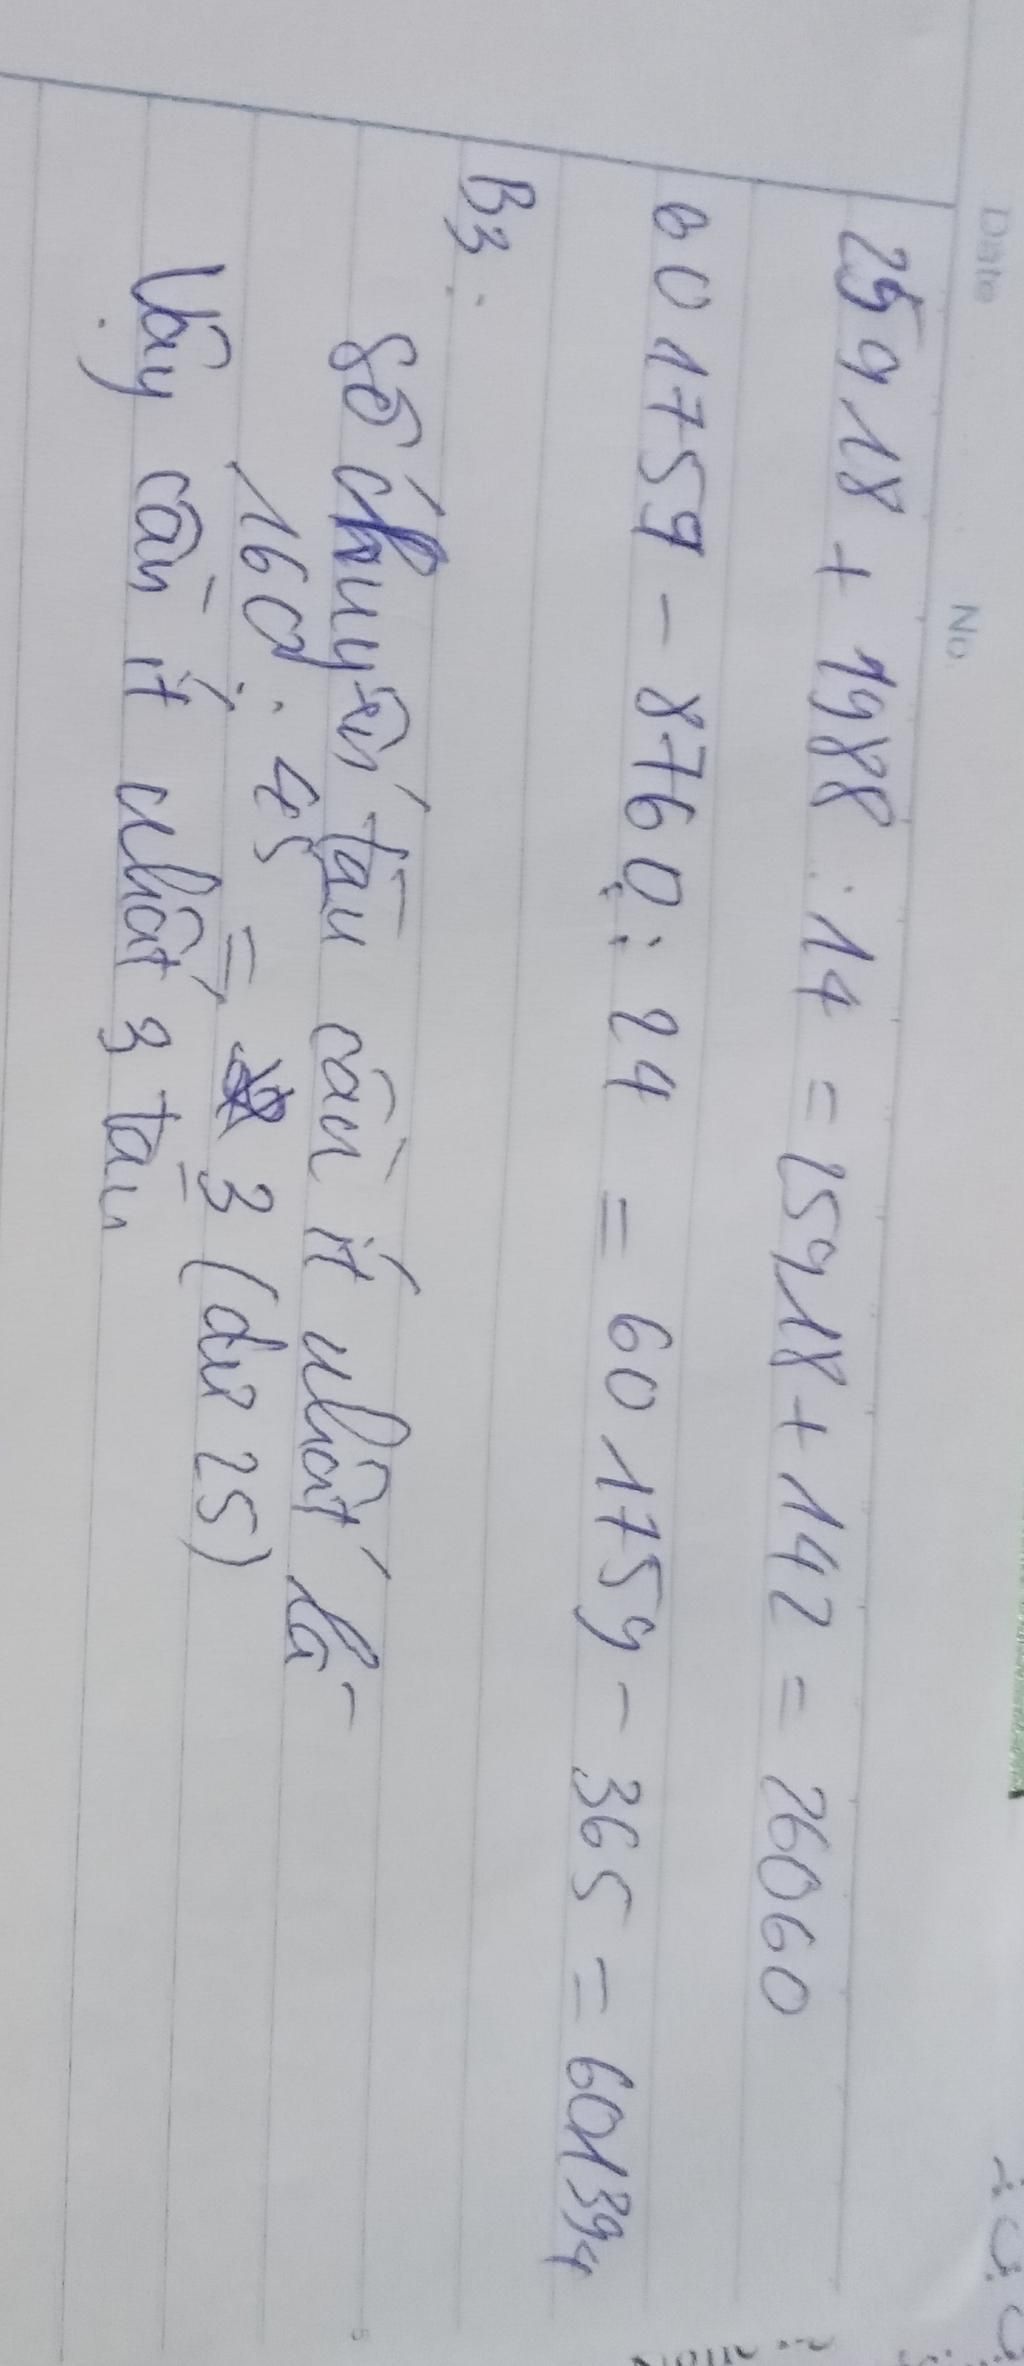 Date No.
25918 + 1988 : 14 = 25918 + 142 = 26060
601759 - 8760 : 24 = 601759 - 365 = 601394
B3:
Số chuyến tàu cần ít nhất là
160 : 45 = 3 (dư 25)
Vậy cần ít nhất 3 tàu